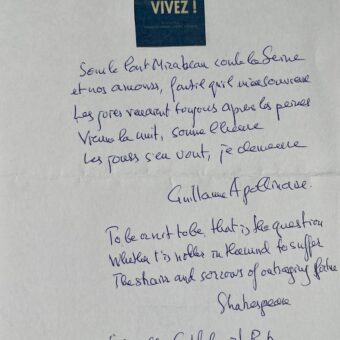 VIVEZ !
Sous le Pont Mirabeau coule la Seine
et nos amours, faut-il qu'il m'en souvienne
Les joies venaient toujours après les peines
Vienne la nuit, sonne l'heure
Les jours s'en vont, je demeure
Guillaume Apollinaire.
To be or not to be, that is the question
Whether t'is nobler in the mind to suffer
The strain and sorrows of outraging fortune
Shakespeare